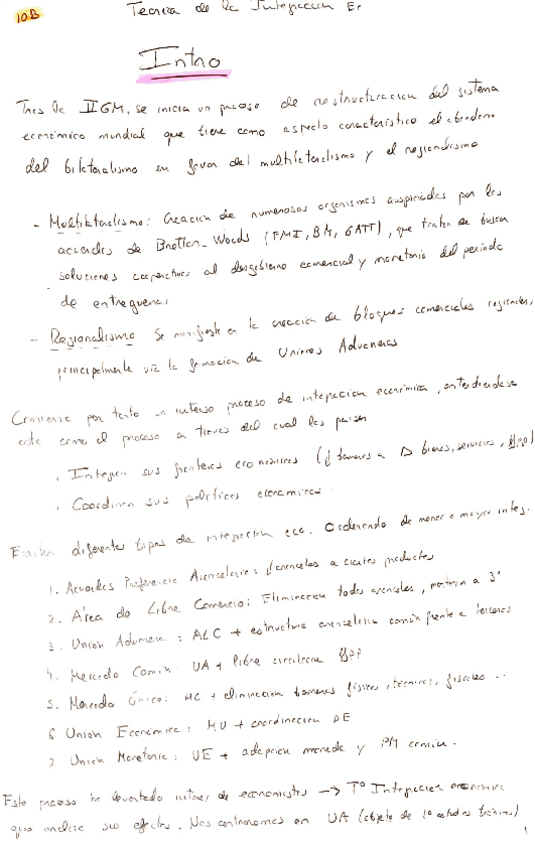 10B
Teoría de la Integracion Ec
Intro
Tras la IIGM, se inicia un proceso de restructuracion del sistema
economico mundial que tiene como aspecto caracteristico el abandono
del bilateralismo en favor del multilateralismo y el regionalismo
- Multilateralismo: Creacion de numerosos organismos auspiciados por los
acuerdos de Bretton-Woods (FMI, BM, GATT), que tratan de buscar
soluciones cooperativas al desgobierno comercial y monetario del periodo
de entreguerras
- Regionalismo Se manifiesta en la creacion de bloques comerciales regionales,
principalmente vía la formacion de Uniones Aduaneras
Comienza por tanto un intenso proceso de integracion económica, entendiendose
este como el proceso a traves del cual los paises
. Integran sus fronteras económicas (↓ barreras a Δ bienes, servicios, ffpp)
. Coordinan sus politicas economicas
Existen diferentes tipos de integracion eco. Ordenando de menor a mayor integ.
1. Acuerdos Preferencia Arancelaria: ↓ aranceles a ciertos productos
2. Área de Libre Comercio: Eliminacion todos aranceles, a 3º
3. Union Aduanera: ALC + estructura arancelaria común frente a terceros
4. Mercado Comun: UA + libre circulacion ffpp
5. Mercado Único: MC + eliminacion barreras fisicas, tecnicas, fiscales ..
6 Union Económica: MU + coordinacion PE
7 Union Monetaria: UE + adopcion moneda y PM comun.
Este proceso ha levantado interes de economistas → Tº Integracion economica
que analiza sus efectos. Nos centraremos en UA (objeto de 1º estudios teóricos)
1